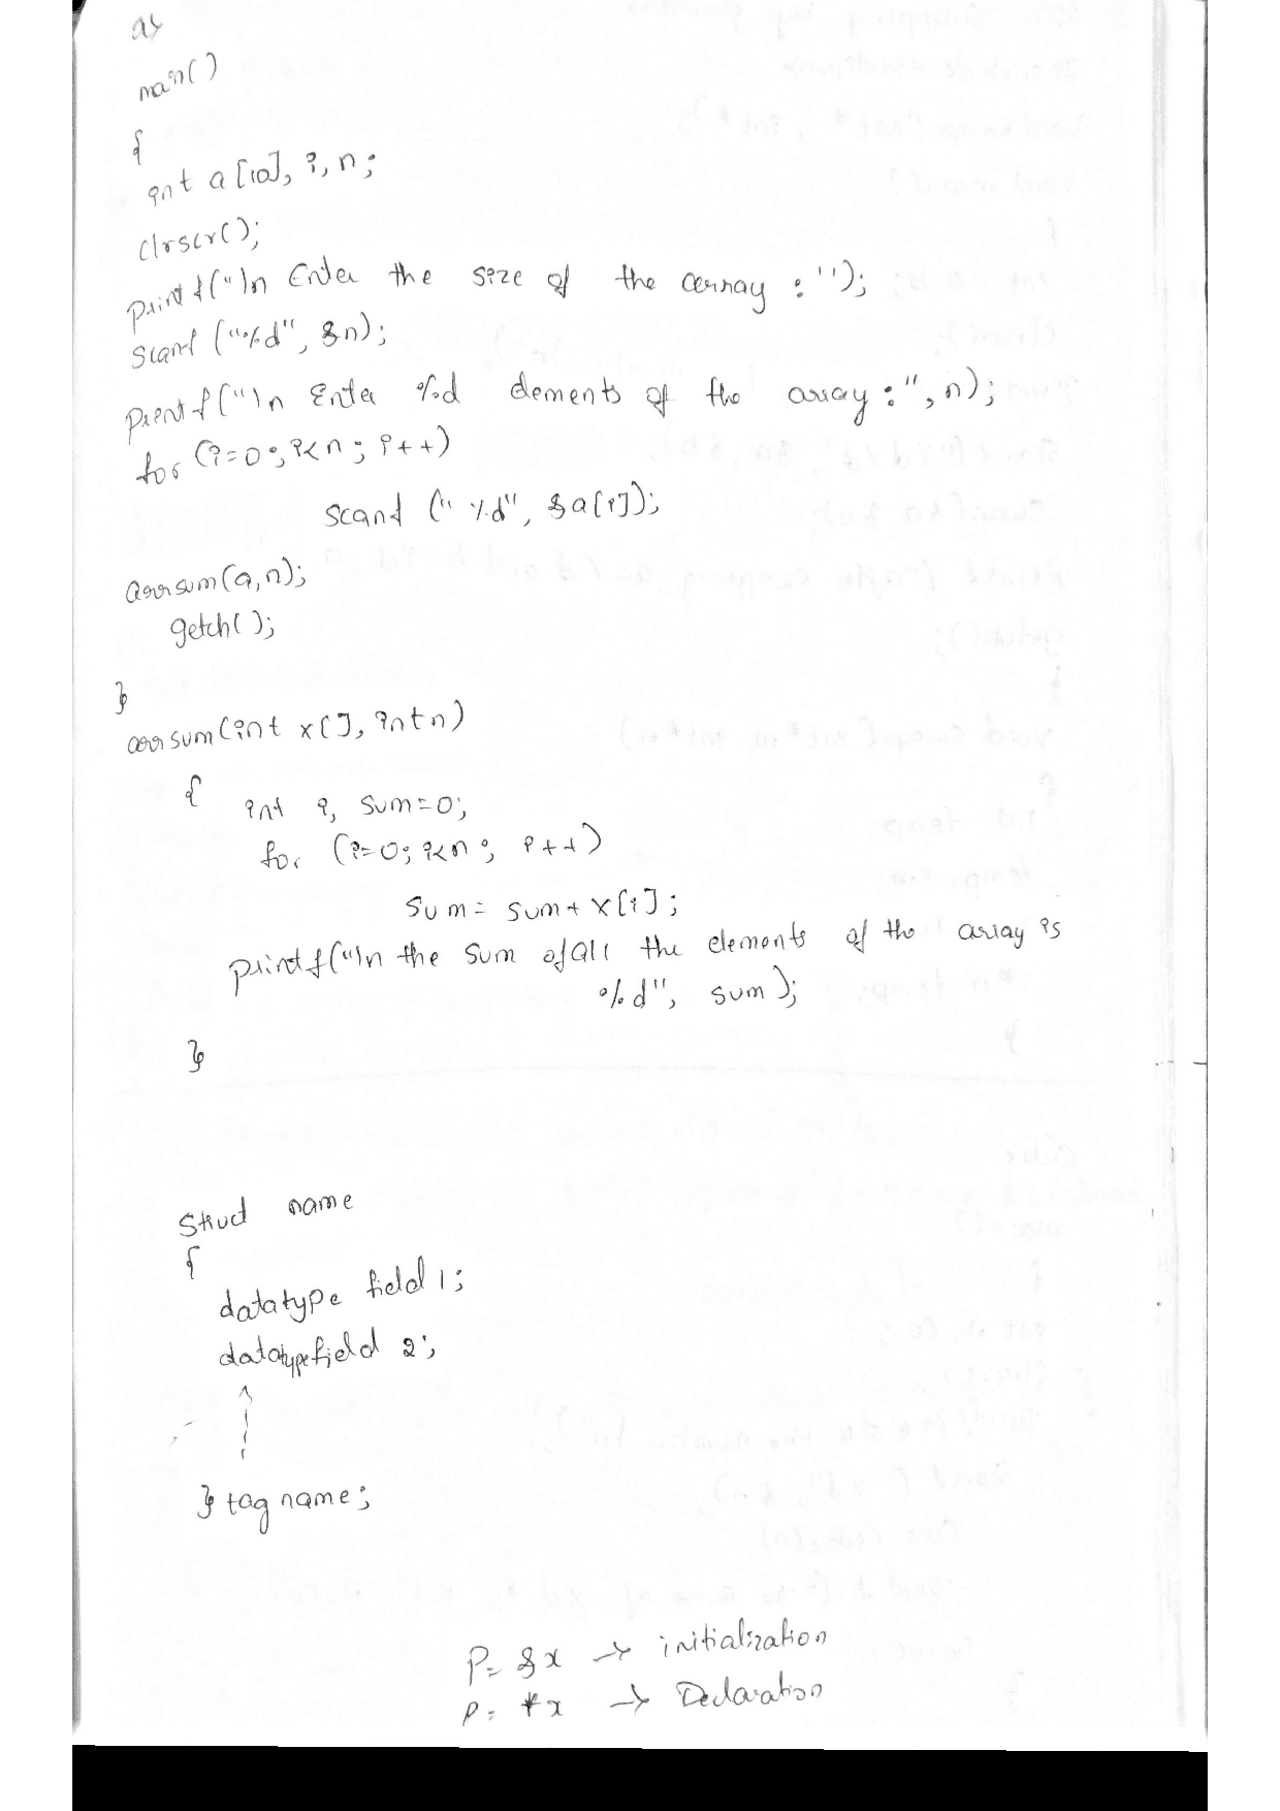 a>
main()
{
int a[10], i, n;
clrscr();
printf("\n Enter the size of the array : ");
scanf ("%d", &n);
printf("\n Enter %d elements of the array : ", n);
for (i=0; i<n; i++)
scanf (" %d", &a[i]);
arrsum(a,n);
getch();
}
arrsum(int x[], int n)
{
int i, sum=0;
for (i=0; i<n; i++)
sum = sum + x[i];
printf("\n the sum of all the elements of the array is
%d", sum);
}
Struct name
{
datatype field 1;
datatype field 2;
} tag name;
P= &x → initialization
P= *x → Declaration